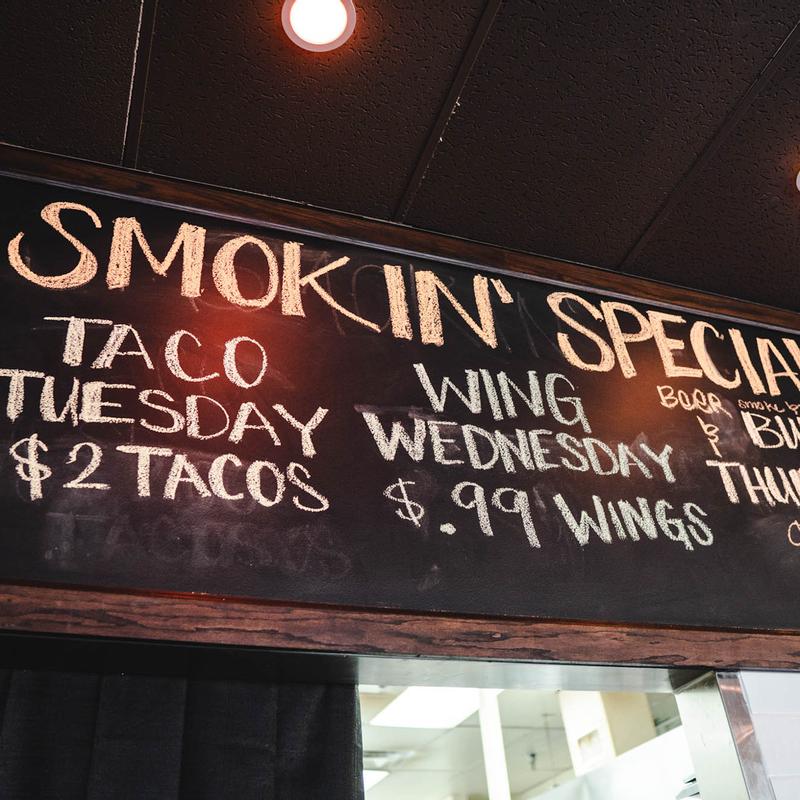 SMOKIN' SPECIAL
TACO
TUESDAY
$2 TACOS
WING
WEDNESDAY
$.99 WINGS
BEER
&